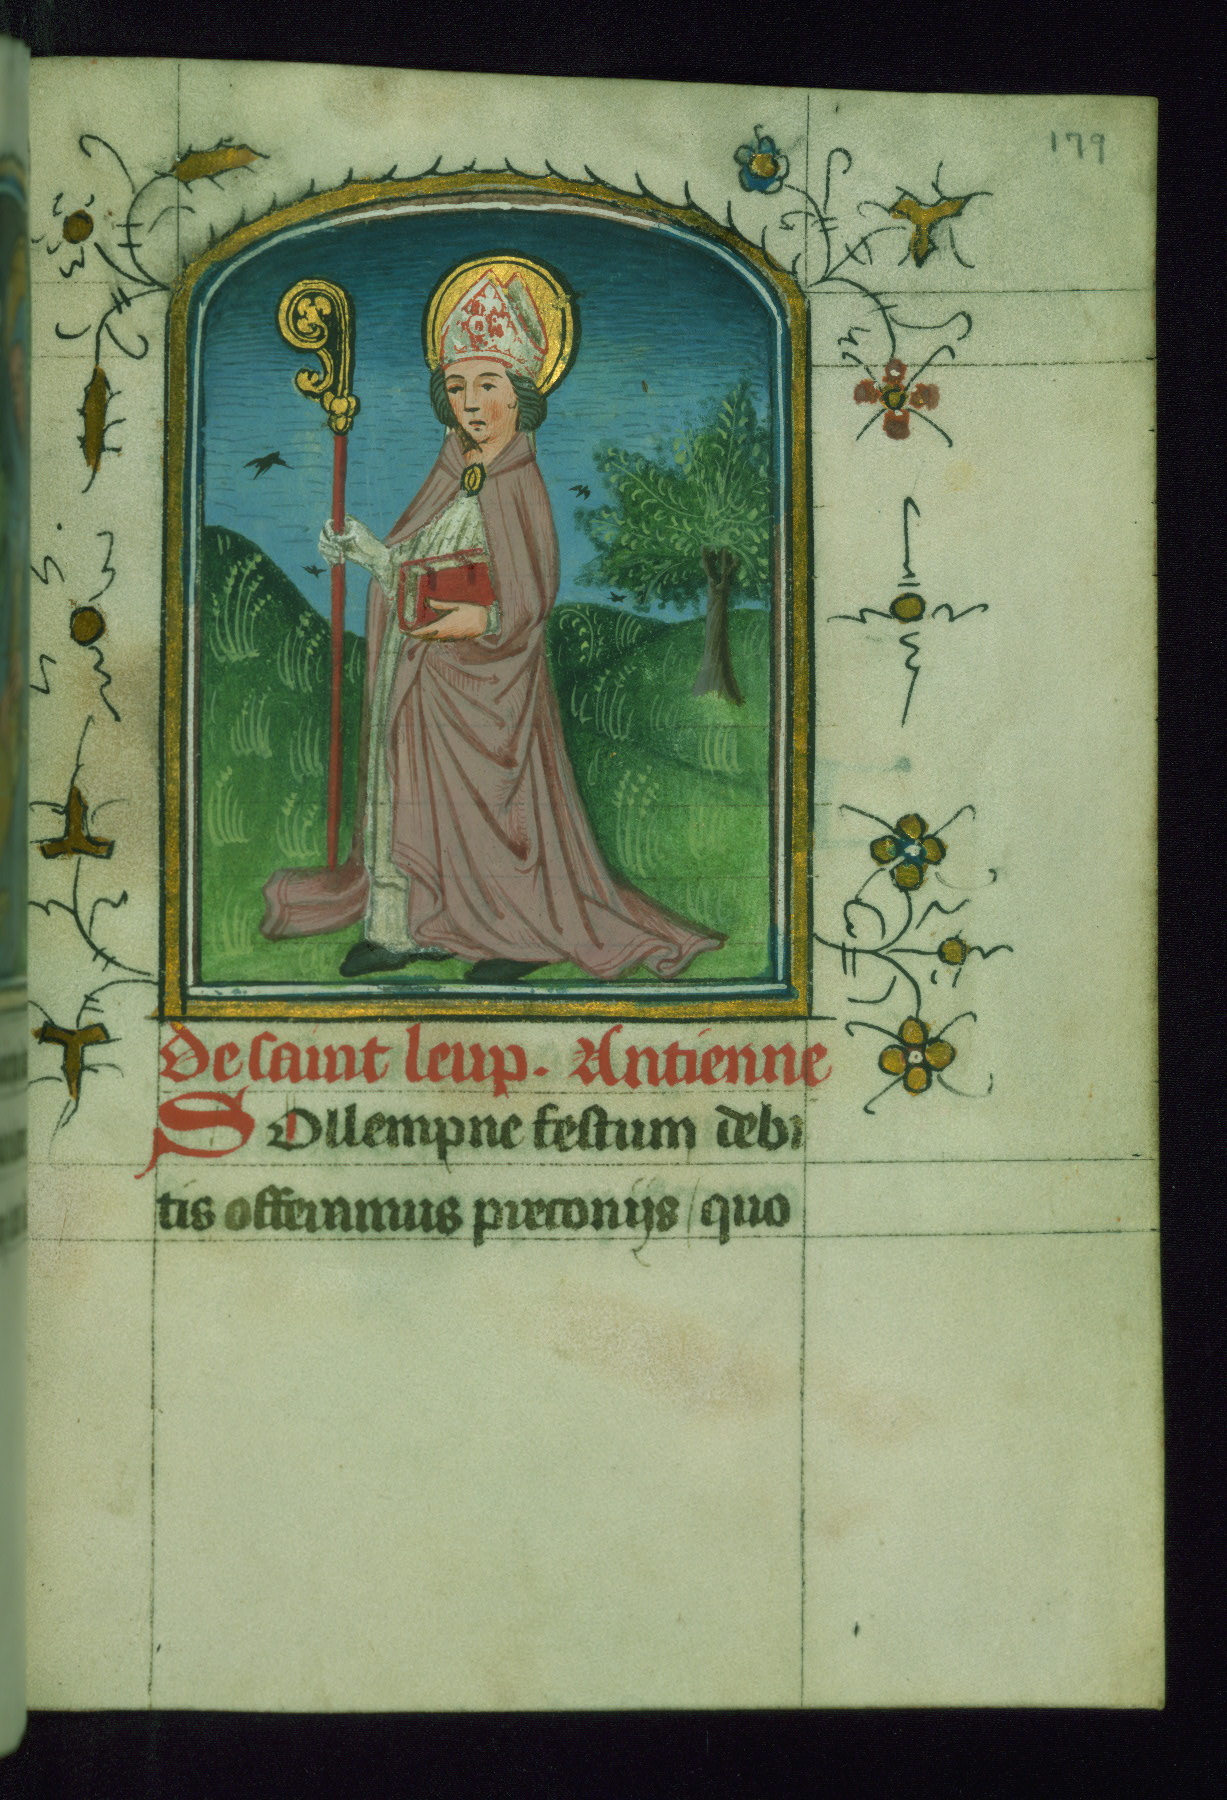 179
De saint leup. Antienne
Sollempne festum debi
tis offeramus preconijs / quo